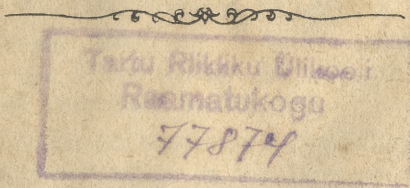 Tartu Riikliku Ülikooli
Raamatukogu
77874